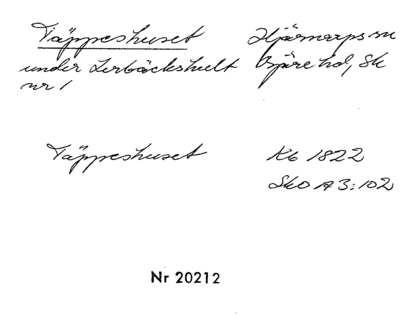 Täppeshuset Hjärnarps sn
under Lerbäckshult Bjäre hd, Sk
nr 1
Täppeshuset Kb 1822
Sko A 3:102
Nr 20212